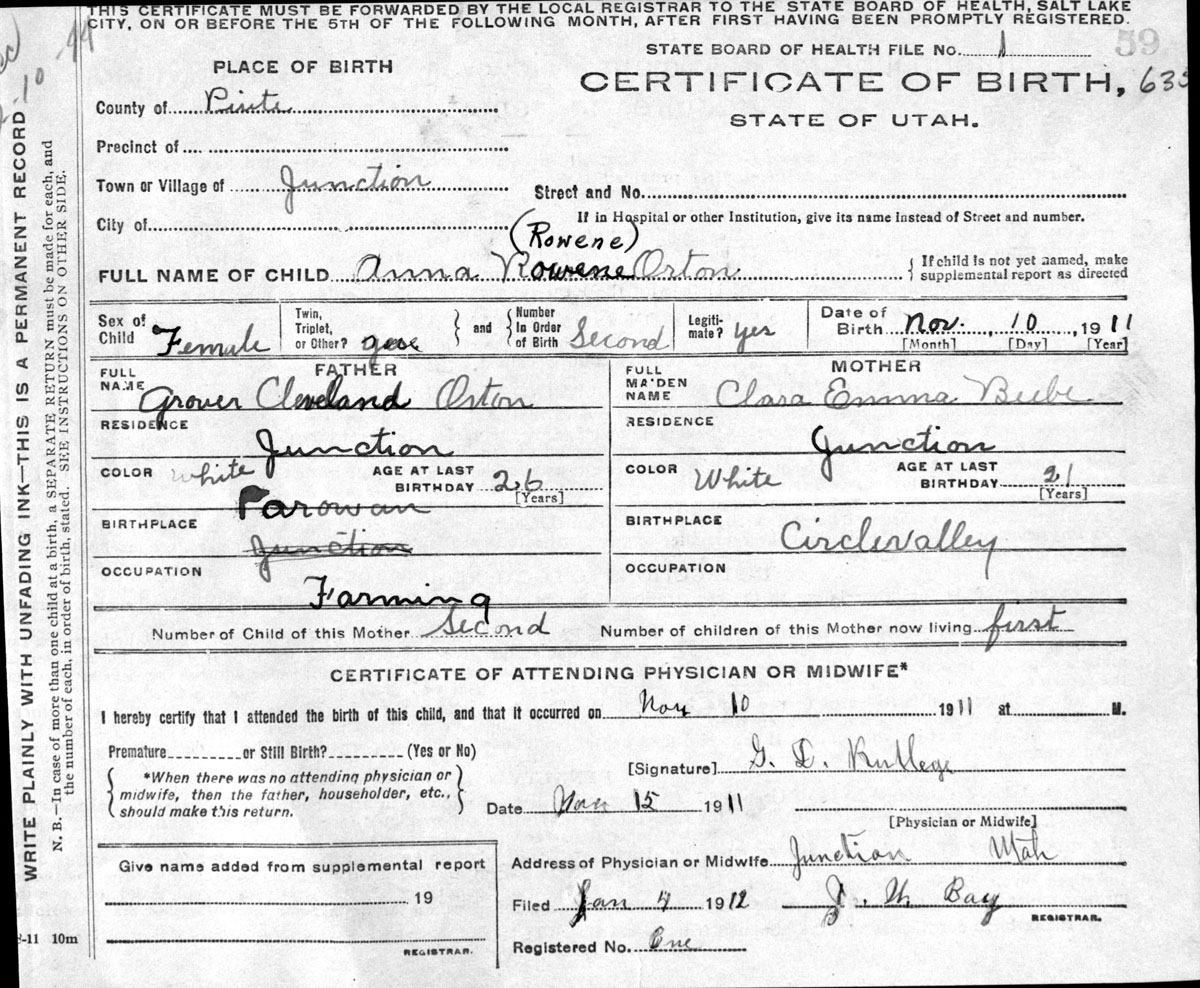 THIS CERTIFICATE MUST BE FORWARDED BY THE LOCAL REGISTRAR TO THE STATE BOARD OF HEALTH, SALT LAKE
CITY, ON OR BEFORE THE 5TH OF THE FOLLOWING MONTH, AFTER FIRST HAVING BEEN PROMPTLY REGISTERED.
STATE BOARD OF HEALTH FILE No. 1 59
PLACE OF BIRTH
CERTIFICATE OF BIRTH, 635
STATE OF UTAH.
County of Piute
Precinct of
Town or Village of Junction
Street and No.
If in Hospital or other Institution, give its name instead of Street and number.
City of
(Rowene)
FULL NAME OF CHILD Anna Rowene Orton
{ If child is not yet named, make
supplemental report as directed
Sex of Child Female
Twin, Triplet, or Other?
} and { Number In Order of Birth Second
Legiti-mate? yes
Date of Birth Nov. 10, 1911
[Month] [Day] [Year]
FATHER
FULL NAME Grover Cleveland Orton
RESIDENCE Junction
COLOR White
AGE AT LAST BIRTHDAY 26
[Years]
Parowan
BIRTHPLACE
Junction
OCCUPATION
Farming
MOTHER
FULL MAIDEN NAME Clara Emma Beebe
RESIDENCE Junction
COLOR White
AGE AT LAST BIRTHDAY 21
[Years]
BIRTHPLACE Circlevalley
OCCUPATION
Number of Child of this Mother Second Number of children of this Mother now living first
CERTIFICATE OF ATTENDING PHYSICIAN OR MIDWIFE*
I hereby certify that I attended the birth of this child, and that it occurred on Nov 10 1911 at M.
Premature or Still Birth? (Yes or No)
{ *When there was no attending physician or
midwife, then the father, householder, etc.,
should make this return. }
[Signature] G. D. Rutlege
Date Nov 15 1911
[Physician or Midwife]
Give name added from supplemental report
19
REGISTRAR.
Address of Physician or Midwife Junction Utah
Filed Jan 4 1912 J. W. Bay
REGISTRAR.
Registered No. One
8-11 10m
WRITE PLAINLY WITH UNFADING INK—THIS IS A PERMANENT RECORD
N. B.—In case of more than one child at a birth, a SEPARATE RETURN must be made for each, and
the number of each, in order of birth, stated. SEE INSTRUCTIONS ON OTHER SIDE.